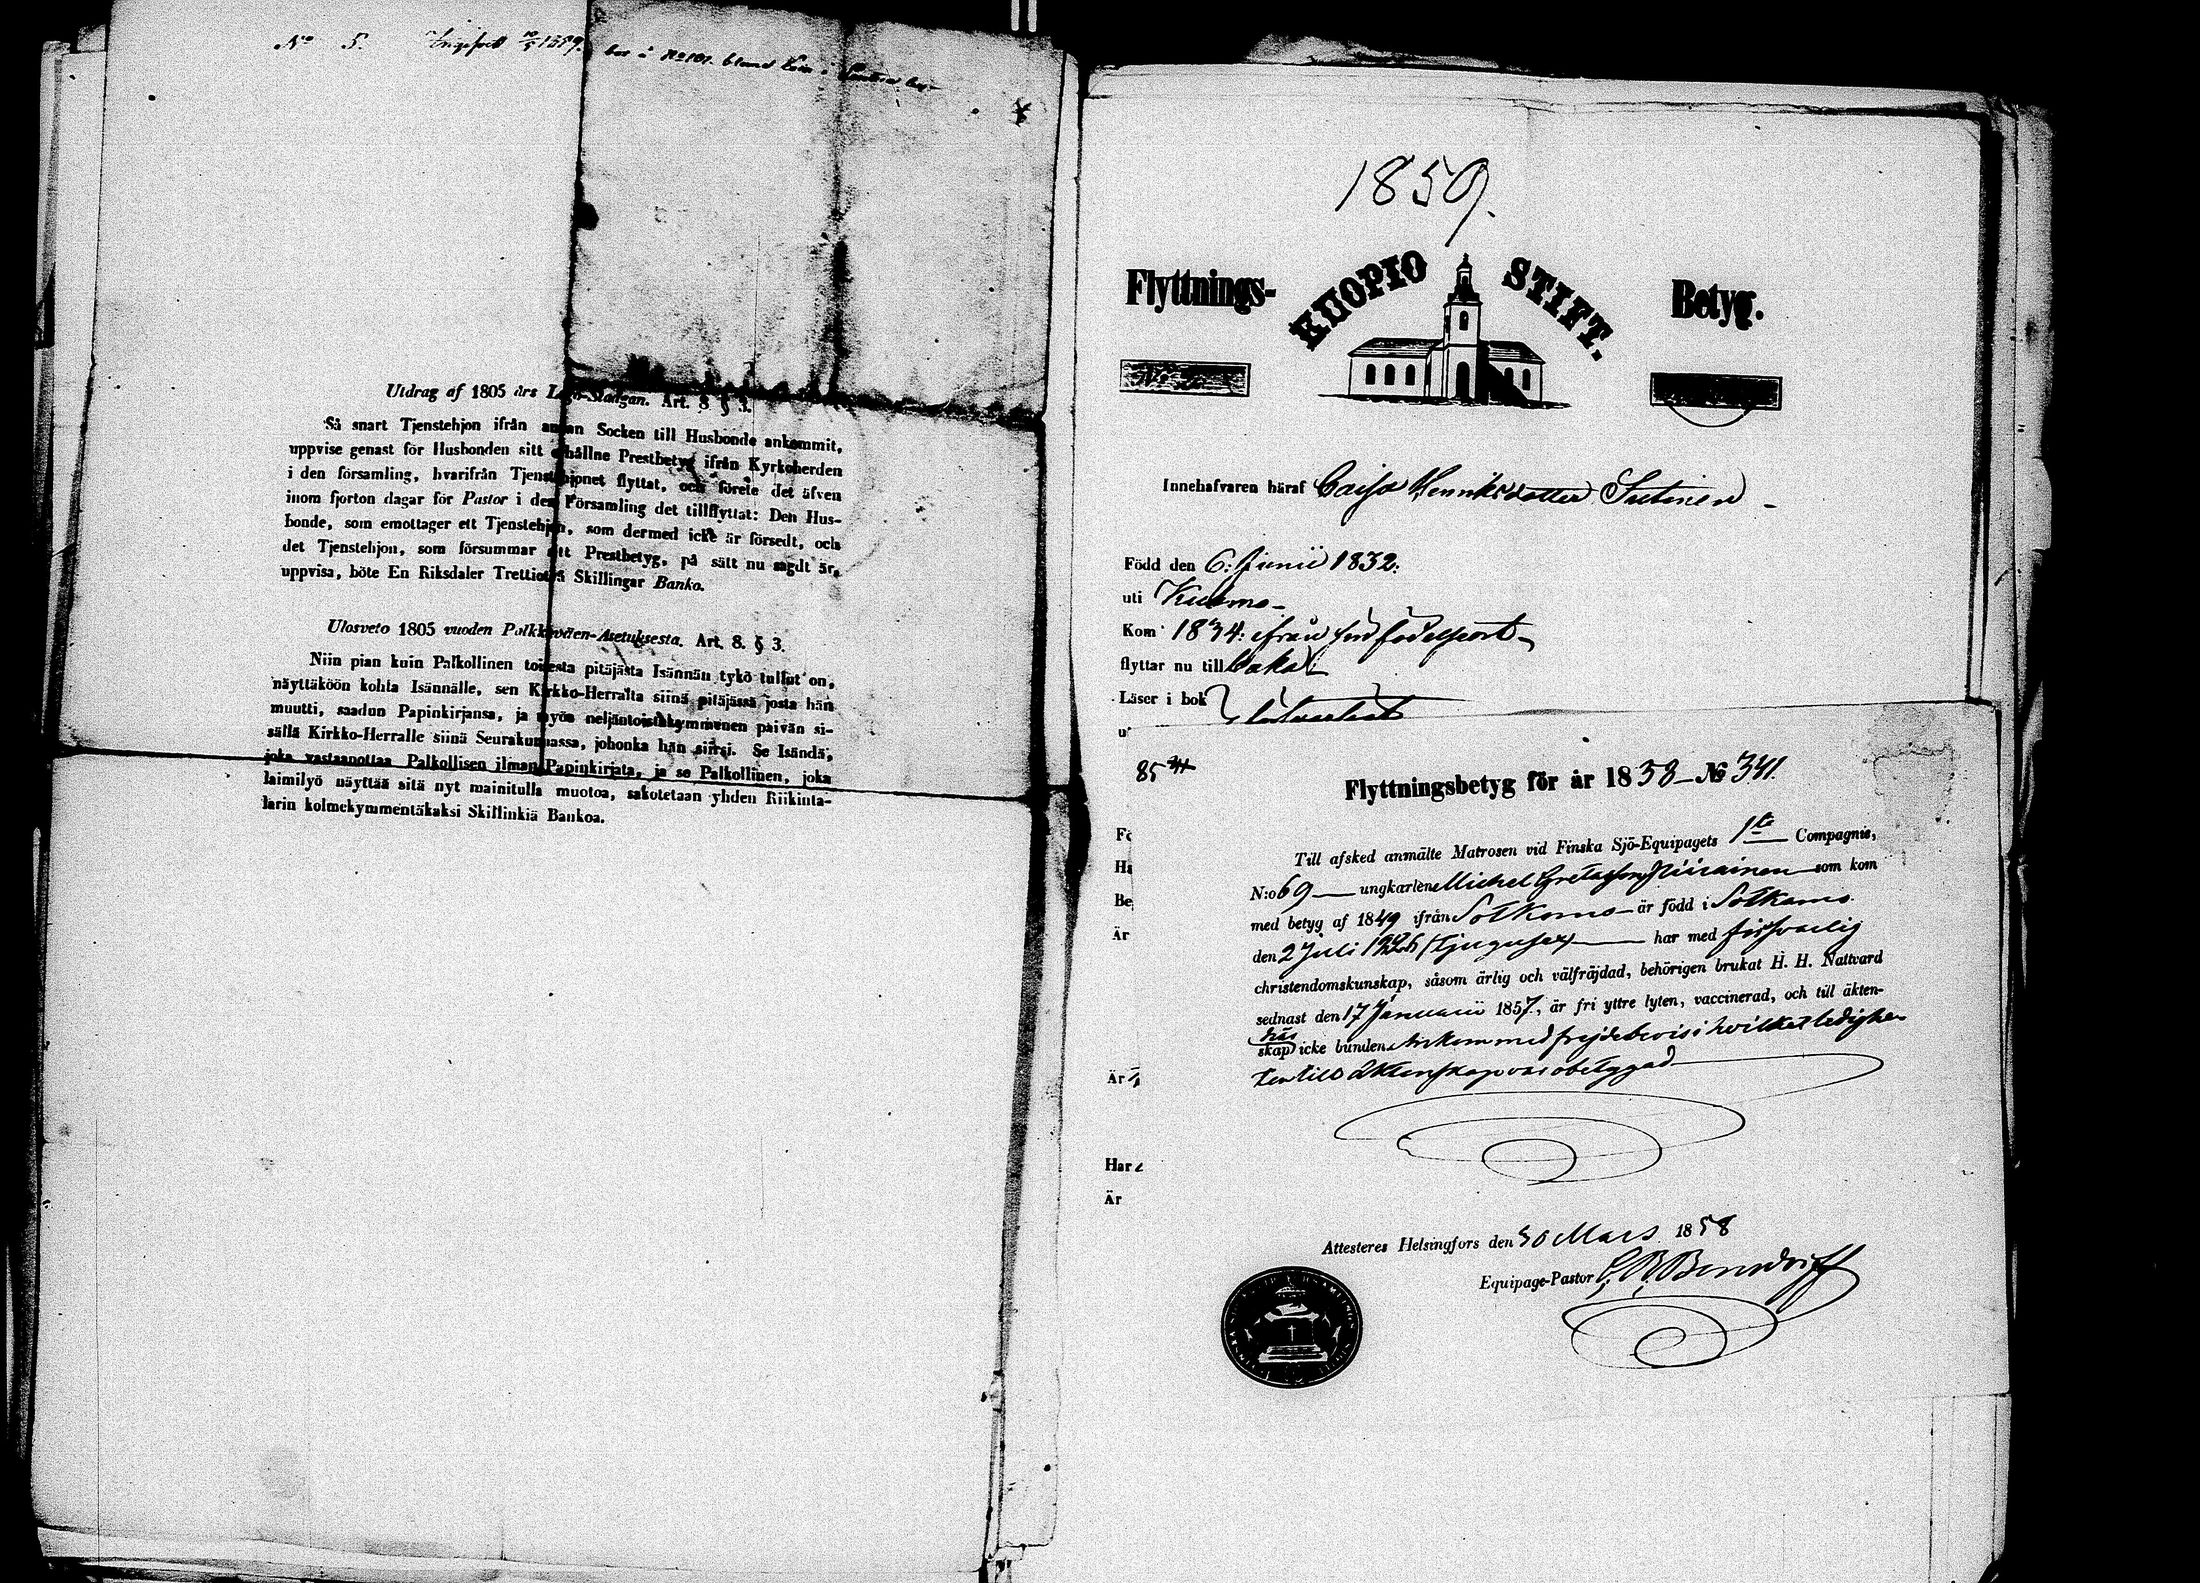 No 5.
Utdrag af 1805 års Lego-Stadgan. Art. 8 § 3.
Så snart Tjenstehjon ifrån annan Socken till Husbonde ankommit,
uppvise genast för Husbonden sitt erhållne Prestbetyg ifrån Kyrkoherden
i den församling, hvarifrån Tjenstehjonet flyttat, och förete det äfven
inom fjorton dagar för Pastor i den Församling det tillflyttat: Den Hus-
bonde, som emottager ett Tjenstehjon, som dermed icke är försedt, och
det Tjenstehjon, som försummar att Prestbetyg, på sätt nu sagdt är,
uppvisa, böte En Riksdaler Trettiotvå Skillingar Banko.
Ulosveto 1805 vuoden Palkkaväen-Asetuksesta. Art. 8. § 3.
Niin pian kuin Palkollinen toisesta pitäjästä Isännän tykö tullut on,
näyttäköön kohta Isännälle, sen Kirkko-Herralta siinä pitäjässä josta hän
muutti, saadun Papinkirjansa, ja myös neljäntoistakymmenen päivän si-
sällä Kirkko-Herralle siinä Seurakunnassa, johonka hän siirsi. Se Isändä,
joka vastaanottaa Palkollisen ilman Papinkirjata, ja se Palkollinen, joka
laimilyö näyttää sitä nyt mainitulla muotoa, sakotetaan yhden Riikinta-
larin kolmekymmentäkaksi Skillinkiä Bankoa.
1859.
Flyttnings- KUOPIO STIFT. Betyg.
Innehafvaren häraf Caisa Henriksdotter Sutinen
Född den 6: Junii 1832:
uti Kuhmo
Kom 1834: ifrån sin födelseort
flyttar nu till
Läser i bok
85
Flyttningsbetyg för år 1858 № 341.
Till afsked anmälte Matrosen vid Finska Sjö-Equipagets 1sta Compagnie,
N:o 69 ungkarlen Michel Gretasson Niirainen som kom
med betyg af 1849 ifrån Sotkamo är född i Sotkamo
den 2 Juli 1826 (tjugusex) har med försvarlig
christendomskunskap, såsom ärlig och välfräjdad, behörigen brukat H. H. Nattvard
sednast den 17 Januarii 1857, är fri yttre lyten, vaccinerad, och till äkten-
skap här icke bunden. Ankom med frejdebevis i hvilket ledighe-
ten till äktenskap var obetyggad
Fö
Ha
Be
Är
Är
Har
Är
Attesteres Helsingfors den 30 Mars 1858
Equipage-Pastor